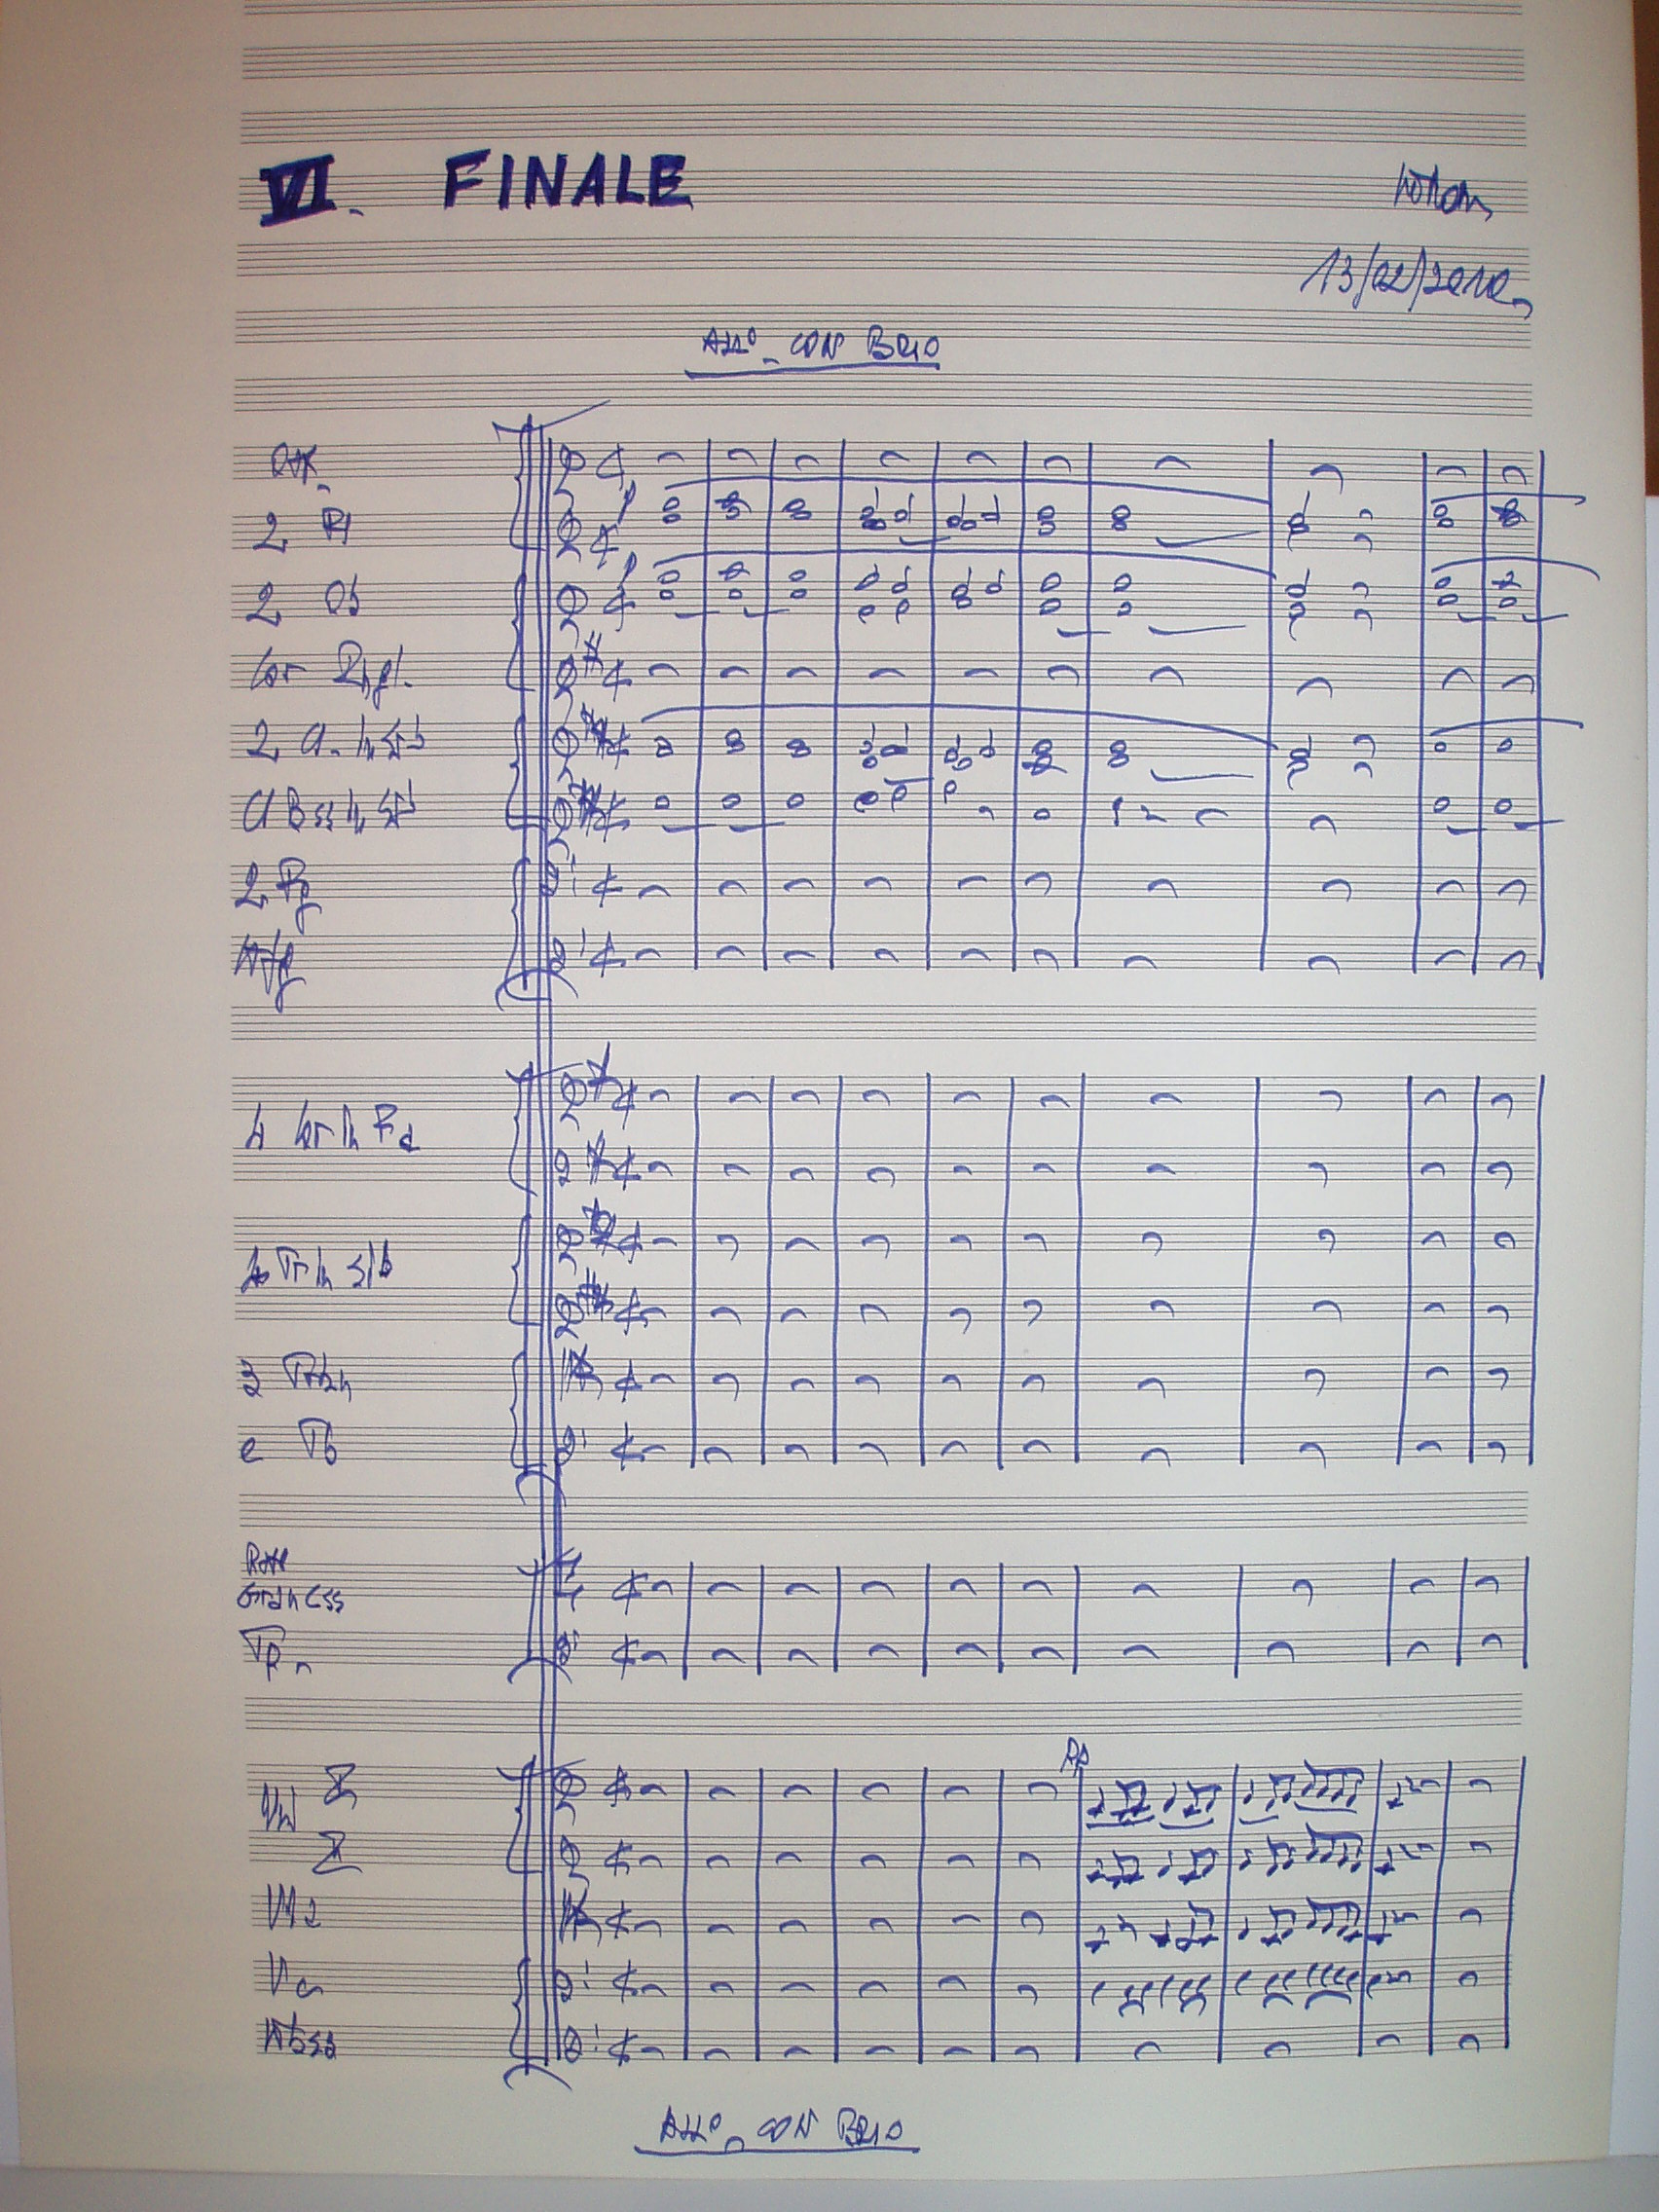 VI. FINALE
13/02/2010
All° CON BRIO
2 Fl
2 Ob
Cor Ingl.
2 Cl. in Sib
Cl Bss in Sib
2 Fg
4 Cor in Fa
4 Tr in Sib
3 Trbn
e Tb
Gran Css
Tp
p
p
pp
Vni I
II
Vle
Vc
All° CON BRIO